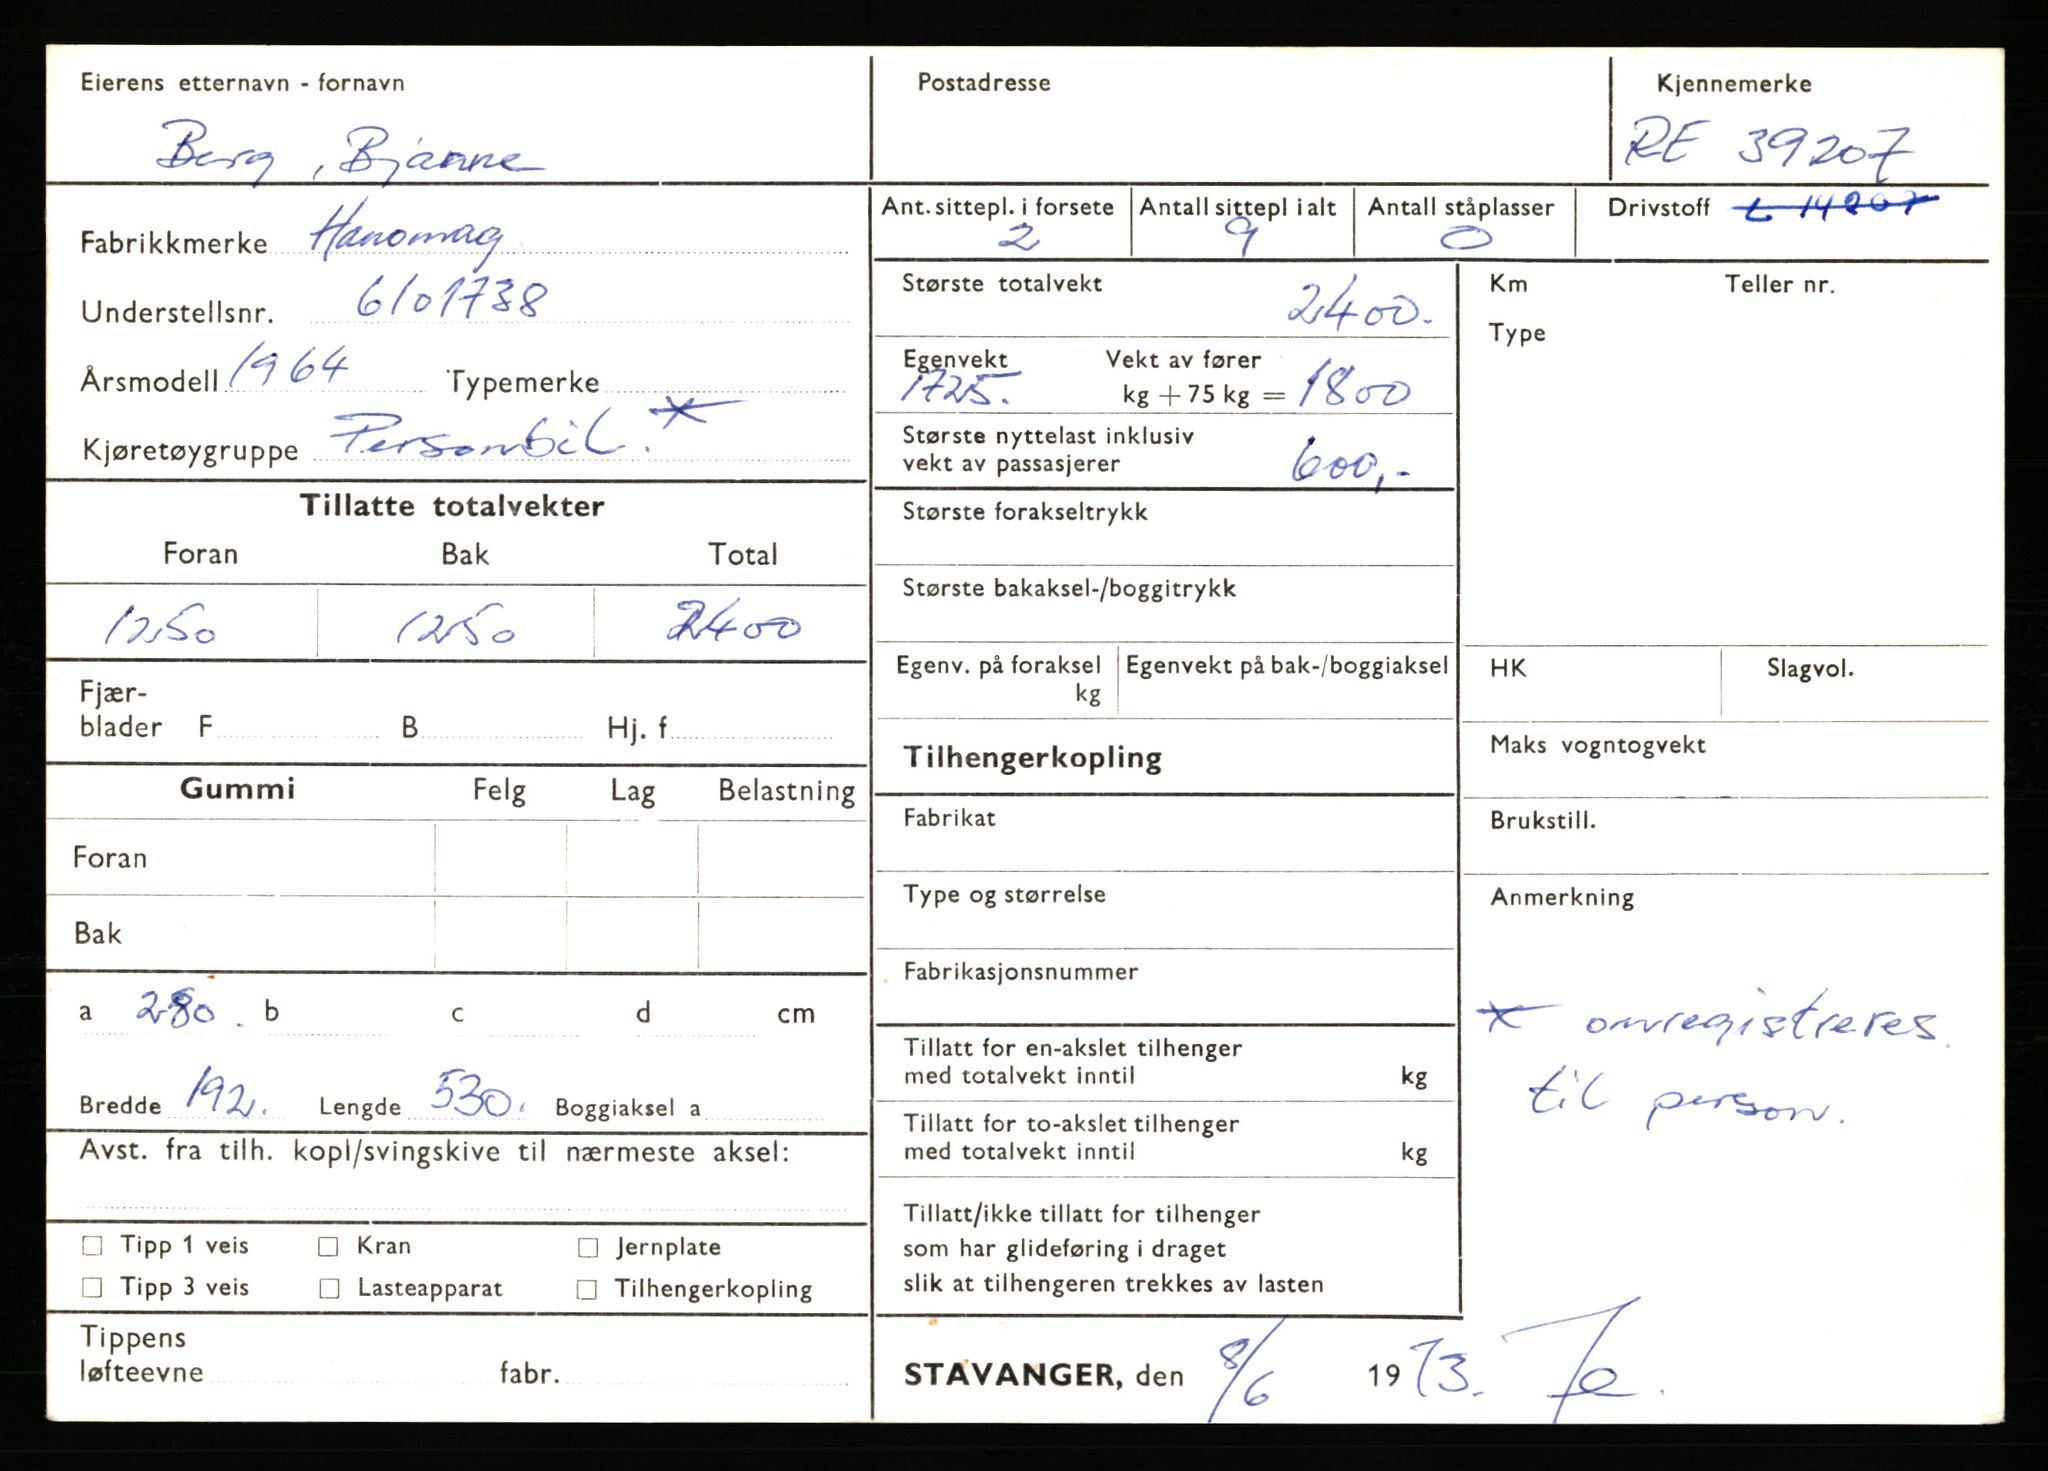 Eierens etternavn - fornavn
Berg, Bjarne
Postadresse
Kjennemerke
RE 39207
Fabrikkmerke Hanomag
Understellsnr. 6101738
Årsmodell 1964 Typemerke
Kjøretøygruppe Personbil. *
Ant. sittepl. i forsete
2
Antall sittepl i alt
9
Antall ståplasser
0
Drivstoff L 14207
Største totalvekt 2400.
Egenvekt Vekt av fører
1725. kg + 75 kg = 1800
Største nyttelast inklusiv
vekt av passasjerer 600,-
Km Teller nr.
Type
Tillatte totalvekter
Foran Bak Total
1250 1250 2400
Største forakseltrykk
Største bakaksel-/boggitrykk
Egenv. på foraksel
kg
Egenvekt på bak-/boggiaksel
HK Slagvol.
Fjær-
blader F B Hj. f
Maks vogntogvekt
Tilhengerkopling
Gummi Felg Lag Belastning
Foran
Bak
Fabrikat
Type og størrelse
Fabrikasjonsnummer
Brukstill.
Anmerkning
* omregistreres
til person.
a 280. b c d cm
Bredde 192. Lengde 530. Boggiaksel a
Avst. fra tilh. kopl/svingskive til nærmeste aksel:
Tillatt for en-akslet tilhenger
med totalvekt inntil kg
Tillatt for to-akslet tilhenger
med totalvekt inntil kg
Tillatt/ikke tillatt for tilhenger
som har glideføring i draget
slik at tilhengeren trekkes av lasten
Tipp 1 veis Kran Jernplate
Tipp 3 veis Lasteapparat Tilhengerkopling
Tippens
løfteevne fabr.
STAVANGER, den 8/6 1973.